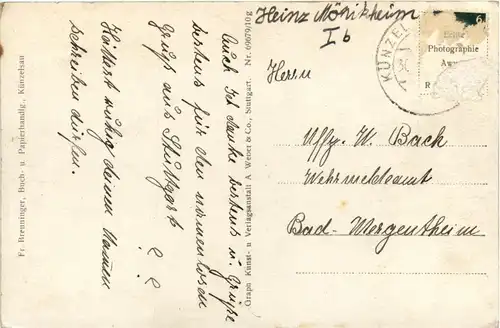 Heinz Mörikheim
I b
Auch ich danke bestens u. Grüße
bestens für den namenlosen
Gruß aus Stuttgart
? ?
Hättest ruhig deinen Namen
schreiben dürfen.
Fr. Brenninger, Buch- u. Papierhandlg., Künzelsau
Graph. Kunst- u. Verlagsanstalt A. Weber & Co., Stuttgart. Nr. 69679/10 g
KÜNZEL
6
Echte
Photographie
Herrn
Uffz. W. Bach
Wehrmeldeamt
Bad-Mergentheim